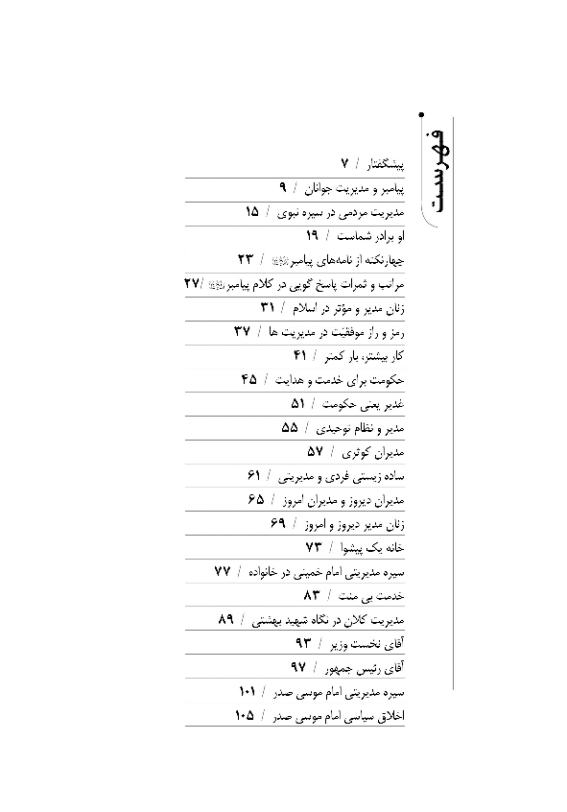 فهرست
پیشگفتار / ۷
پیامبر و مدیریت جوانان / ۹
مدیریت مردمی در سیره نبوی / ۱۵
او برادر شماست / ۱۹
چهارنکته از نامه‌های پیامبر / ۲۳
مراتب و ثمرات پاسخ گویی در کلام پیامبر / ۲۷
زنان مدیر و مؤثر در اسلام / ۳۱
رمز و راز موفقیّت در مدیریت ها / ۳۷
کار بیشتر، بار کمتر / ۴۱
حکومت برای خدمت و هدایت / ۴۵
غدیر یعنی حکومت / ۵۱
مدیر و نظام توحیدی / ۵۵
مدیران کوثری / ۵۷
ساده زیستی فردی و مدیریتی / ۶۱
مدیران دیروز و مدیران امروز / ۶۵
زنان مدیر دیروز و امروز / ۶۹
خانه یک پیشوا / ۷۳
سیره مدیریتی امام خمینی در خانواده / ۷۷
خدمت بی منت / ۸۳
مدیریت کلان در نگاه شهید بهشتی / ۸۹
آقای نخست وزیر / ۹۳
آقای رئیس جمهور / ۹۷
سیره مدیریتی امام موسی صدر / ۱۰۱
اخلاق سیاسی امام موسی صدر / ۱۰۵